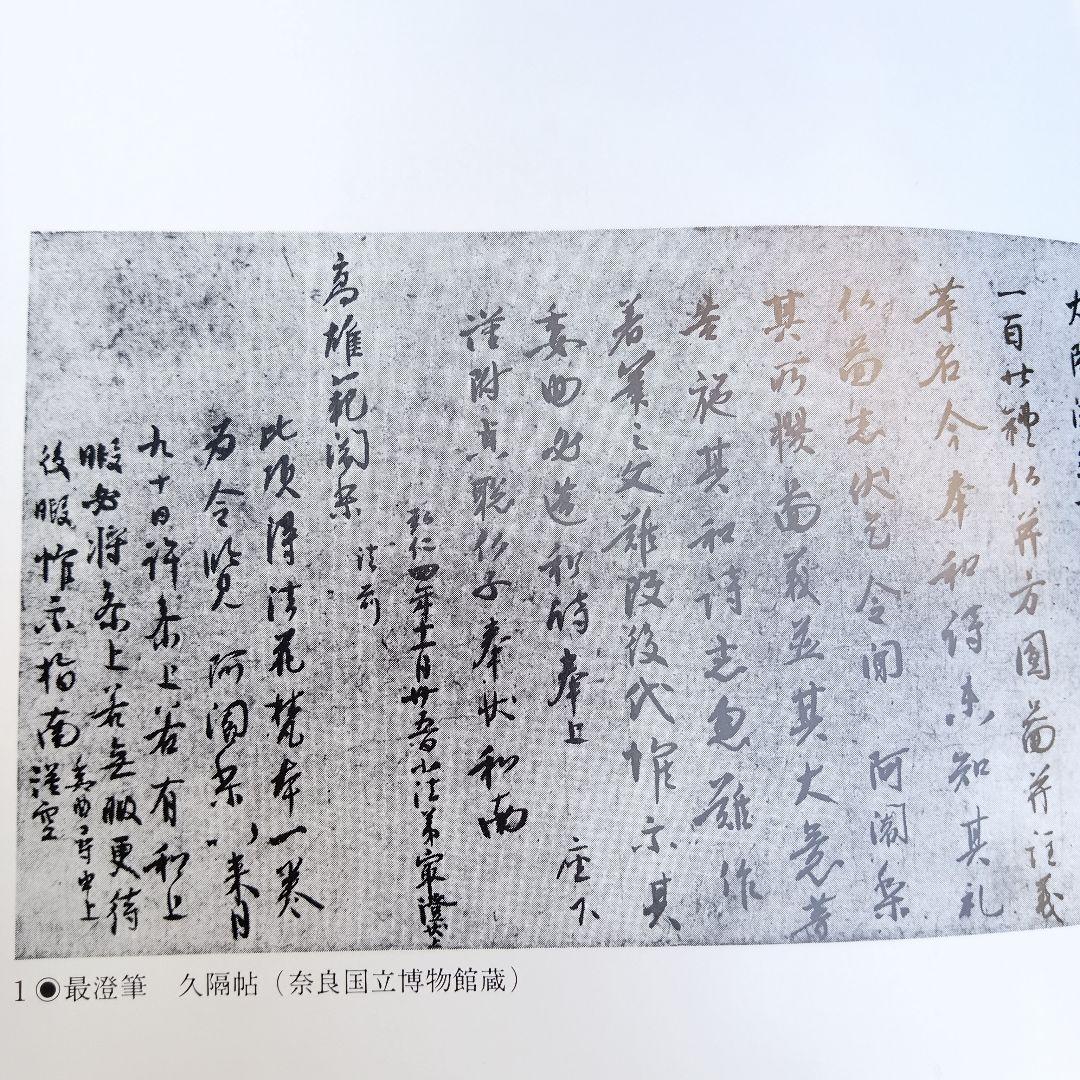 大阿
一百廿禮仏并方圓図并註義
等名今奉和詩未知其礼
仏図志伏乞令聞 阿闍梨
其所撰図義並其大意等
告施其和詩者忽難作
著筆之文難改後代惟示其
委曲必造和詩奉上 座下
謹附貞聡仏子奉状和南
弘仁四年十一月廿五日小法弟最澄状上
高雄範闍梨 法前
此頃得法花梵本一巻
為令覧阿闍梨、来月
九十日許参上若有和上
暇必将参上若無暇更待
後暇惟示指南謹空
1◉最澄筆 久隔帖（奈良国立博物館蔵）